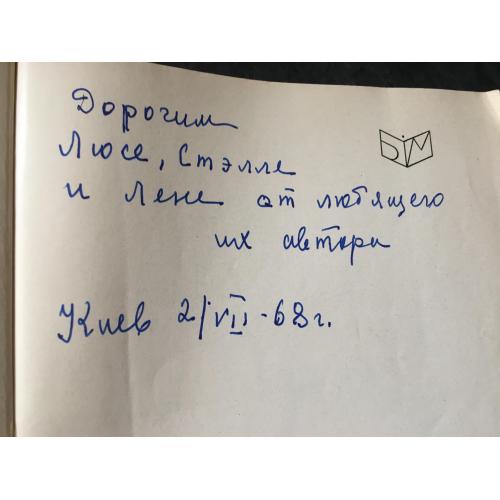 Дорогим
Люсе, Стэлле
и Лене от любящего
их автора
Киев 2/VII-68г.
БІМ